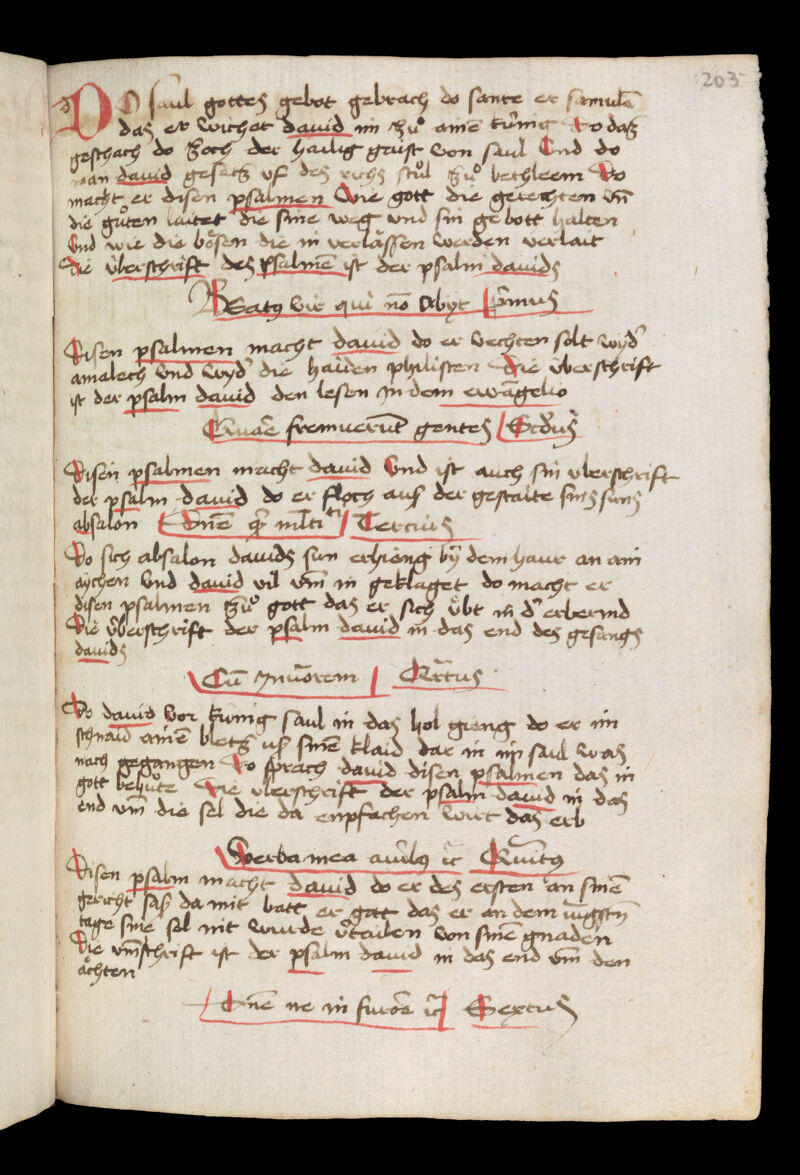 203
DO saul gottes gebot gebrach do sante er samulē
das er wichet david im zuͦ ainē kúnig Do das
geschach do zoch der hailig gaist von saul Und do
man david gesatz vf des richs stuͦl zuͦ bethleem Do
macht er disen psalmen Wie gott die gerechten vn̄
die guͦten laitet die sine weg vnd sin gebott halten
Und wie die boͤsen die in verlassen werden verlait
Die úberschrift des psalmē ist der psalm davids
Beatus vir qui nō abyt Primus
Disen psalmen macht david do er vechten solt wyd'
amalech vnd wyd' die haiden philisten Die überschrift
ist der psalm david den lesen in dem ewāgelio
Quare fremuerūt gentes Secdus
Disen psalmen macht david Und ist auch sin vberschrift
der psalm david do er floch aus der gestalte sins suns
absalon Dn̄e qr̄ ml̄ti Tercius
Do sich absalon davids sun erhieng by dem haur an ain
aychen Und david vil vm̄ in geklaget do macht er
disen psalmen zuͦ gott das er sich uͤbt in d' erbermd
Die úberschrift der psalm david in das end des gesangs
davids
Cū Invocarem Qrtus
Do david vor kúnig saul in das hol gieng do er im
schnaid ainē bletz us sinē klaid dar in im saul was
nach gegangen Do sprach david disen psalmen das in
gott behuͤte Die vberschrift der psalm david in das
end vm̄ die sel die da enpfachen wirt das erb
Verba mea aurib9 rc̄ Quintus
Disen psalm macht david do er des ersten an sinē
gericht sas da mit batt er gott das er an dem iungstn̄
tage sine sel nit wurde v'tailen von sinē gnaden
Die vm̄schrift ist der psalm david in das end vm̄ den
achten
Dn̄e ne in furore rc̄ Sextus